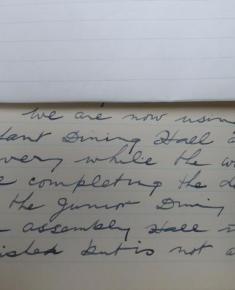 we are now using
tant Dining Hall
every while the
completing the
the Junior Dining
assembly Hall
ished but is not a